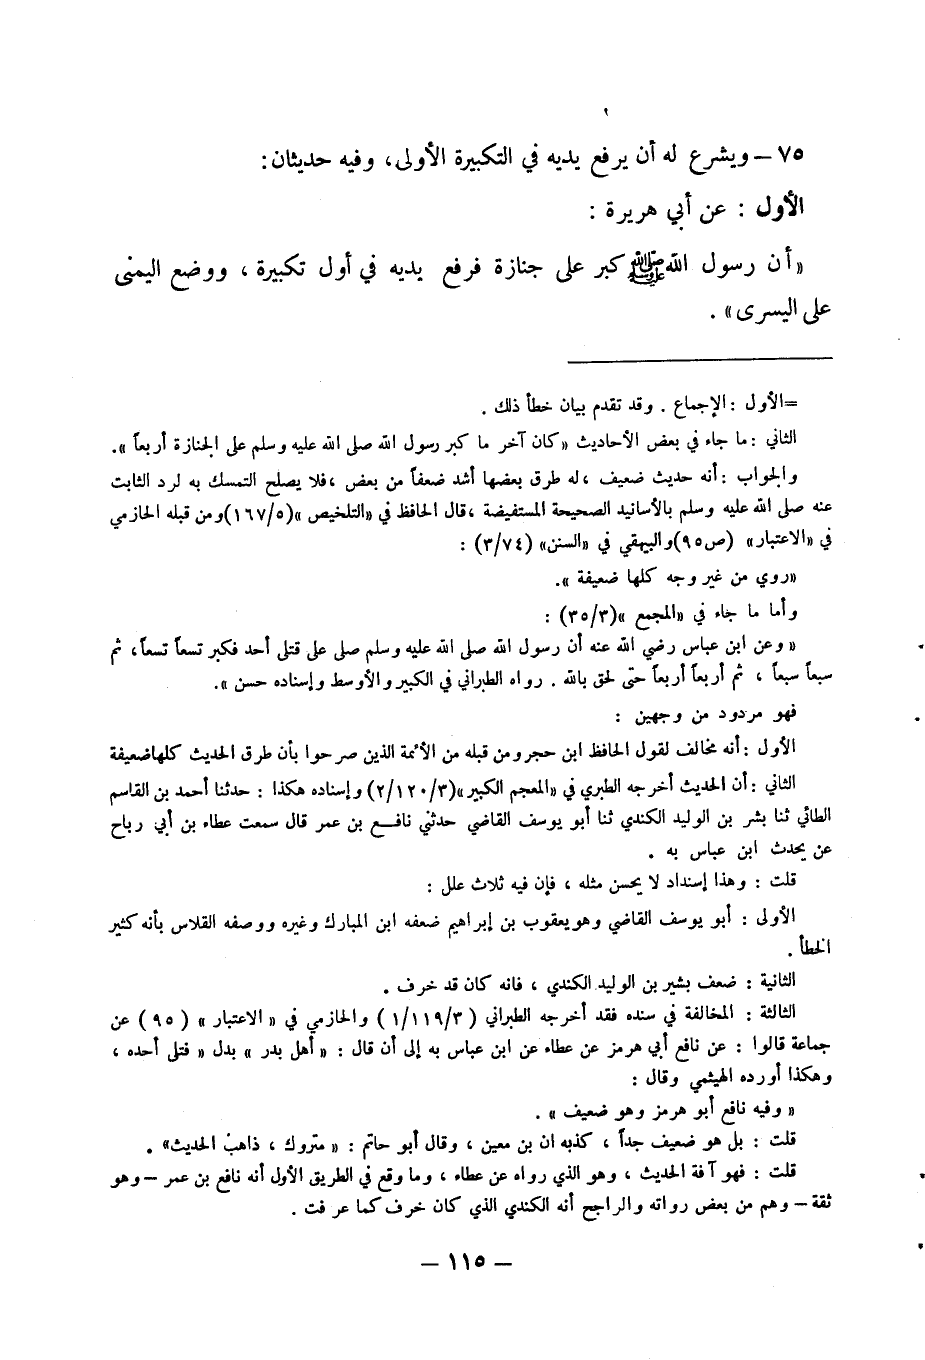 ٧٥ – ويشرع له أن يرفع يديه في التكبيرة الأولى، وفيه حديثان:
الأول : عن أبي هريرة :
«أن رسول الله ﷺ كبر على جنازة فرفع يديه في أول تكبيرة ، ووضع اليمنى
على اليسرى» .
=الأول :الإجماع . وقد تقدم بيان خطأ ذلك .
الثاني :ما جاء في بعض الأحاديث «كان آخر ما كبر رسول الله صلى الله عليه وسلم على الجنازة أربعاً ».
والجواب :أنه حديث ضعيف ،له طرق بعضها أشد ضعفاً من بعض ،فلا يصلح التمسك به لرد الثابت
عنه صلى الله عليه وسلم بالأسانيد الصحيحة المستفيضة ،قال الحافظ في «التلخيص »(١٦٧/٥)ومن قبله الحازمي
في «الاعتبار» (ص٩٥)والبيهقي في «السنن» (٣/٧٤) :
«روي من غير وجه كلها ضعيفة ».
وأما ما جاء في «المجمع »(٣٥/٣) :
« وعن ابن عباس رضي الله عنه أن رسول الله صلى الله عليه وسلم صلى على قتلى أحد فكبر تسعاً تسعاً، ثم
سبعاً سبعاً ، ثم أربعاً أربعاً حتى لحق بالله . رواه الطبراني في الكبير والأوسط وإسناده حسن ».
فهو مردود من وجهين :
الأول :أنه مخالف لقول الحافظ ابن حجر ومن قبله من الأئمة الذين صرحوا بأن طرق الحديث كلهاضعيفة
الثاني :أن الحديث أخرجه الطبري في «المعجم الكبير»(٢/١٢٠/٣) وإسناده هكذا : حدثنا أحمد بن القاسم
الطائي ثنا بشر بن الوليد الكندي ثنا أبو يوسف القاضي حدثني نافع بن عمر قال سمعت عطاء بن أبي رباح
عن يحدث ابن عباس به .
قلت : وهذا إسناد لا يحسن مثله ، فإن فيه ثلاث علل :
الأولى : أبو يوسف القاضي وهويعقوب بن إبراهيم ضعفه ابن المبارك وغيره ووصفه القلاس بأنه كثير
الخطأ .
الثانية : ضعف بشير بن الوليد الكندي ، فانه كان قد خرف .
الثالثة : المخالفة في سنده فقد أخرجه الطبراني ( ١/١١٩/٣) والحازمي في « الاعتبار » ( ٩٥) عن
جماعة قالوا : عن نافع أبي هرمز عن عطاء عن ابن عباس به إلى أن قال : « أهل بدر » بدل « قتلى أحده ،
وهكذا أورده الهيثمي وقال :
« وفيه نافع أبو هرمز وهو ضعيف » .
قلت : بل هو ضعيف جداً ، كذبه ان بن معين ، وقال أبو حاتم : « متروك ، ذاهب الحديث» .
قلت : فهو آفة الحديث ، وهو الذي رواه عن عطاء ، وما وقع في الطريق الأول أنه نافع بن عمر –وهو
ثقة – وهم من بعض رواته والراجح أنه الكندي الذي كان خرف كما عرفت .
– ١١٥ –